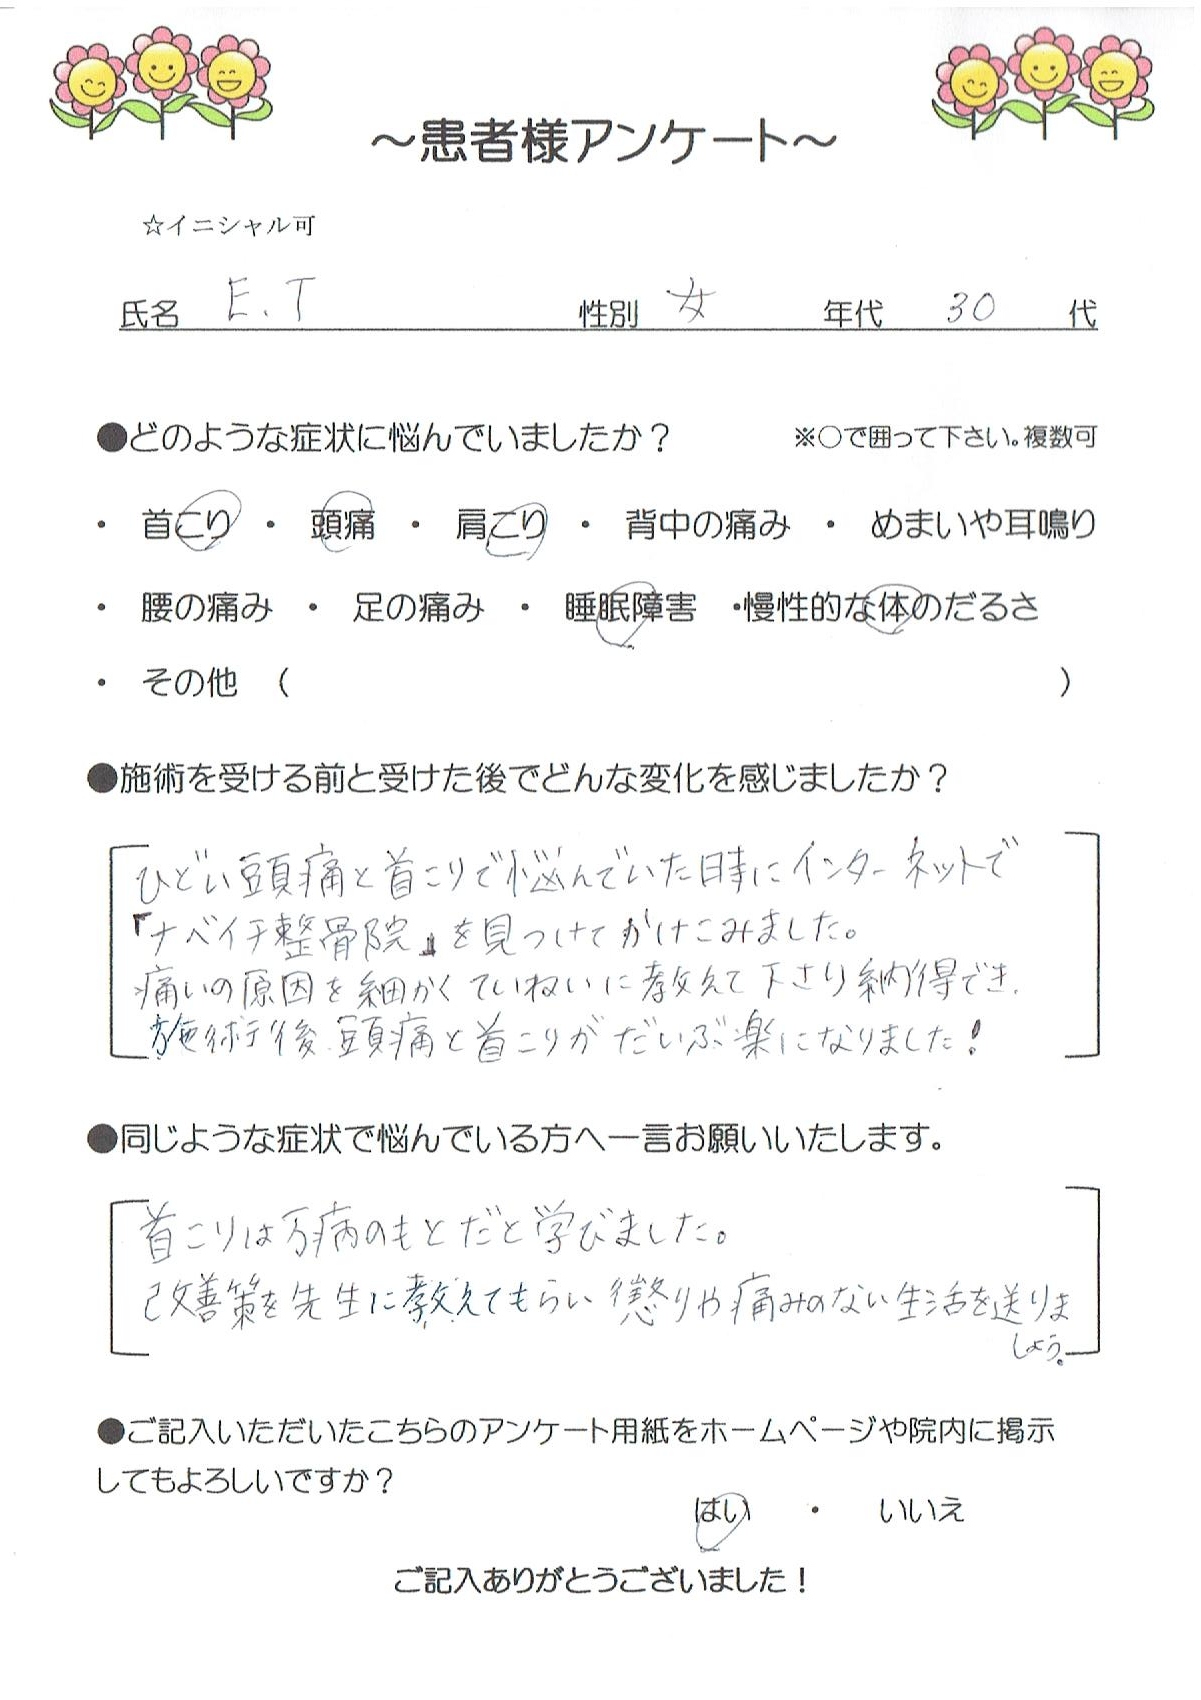 ～患者様アンケート～
☆イニシャル可
氏名 E.T 性別 女 年代 30 代
●どのような症状に悩んでいましたか？ ※○で囲って下さい。複数可
・ 首こり ・ 頭痛 ・ 肩こり ・ 背中の痛み ・ めまいや耳鳴り
・ 腰の痛み ・ 足の痛み ・ 睡眠障害 ・慢性的な体のだるさ
・ その他 （ ）
●施術を受ける前と受けた後でどんな変化を感じましたか？
ひどい頭痛と首こりで悩んでいた時にインターネットで
『ナベイチ整骨院』を見つけてかけこみました。
痛いの原因を細かくていねいに教えて下さり納得でき、
施術後、頭痛と首こりがだいぶ楽になりました！
●同じような症状で悩んでいる方へ一言お願いいたします。
首こりは万病のもとだと学びました。
改善策を先生に教えてもらい 懲りや痛みのない生活を送りま
しょう。
●ご記入いただいたこちらのアンケート用紙をホームページや院内に掲示
してもよろしいですか？
はい ・ いいえ
ご記入ありがとうございました！